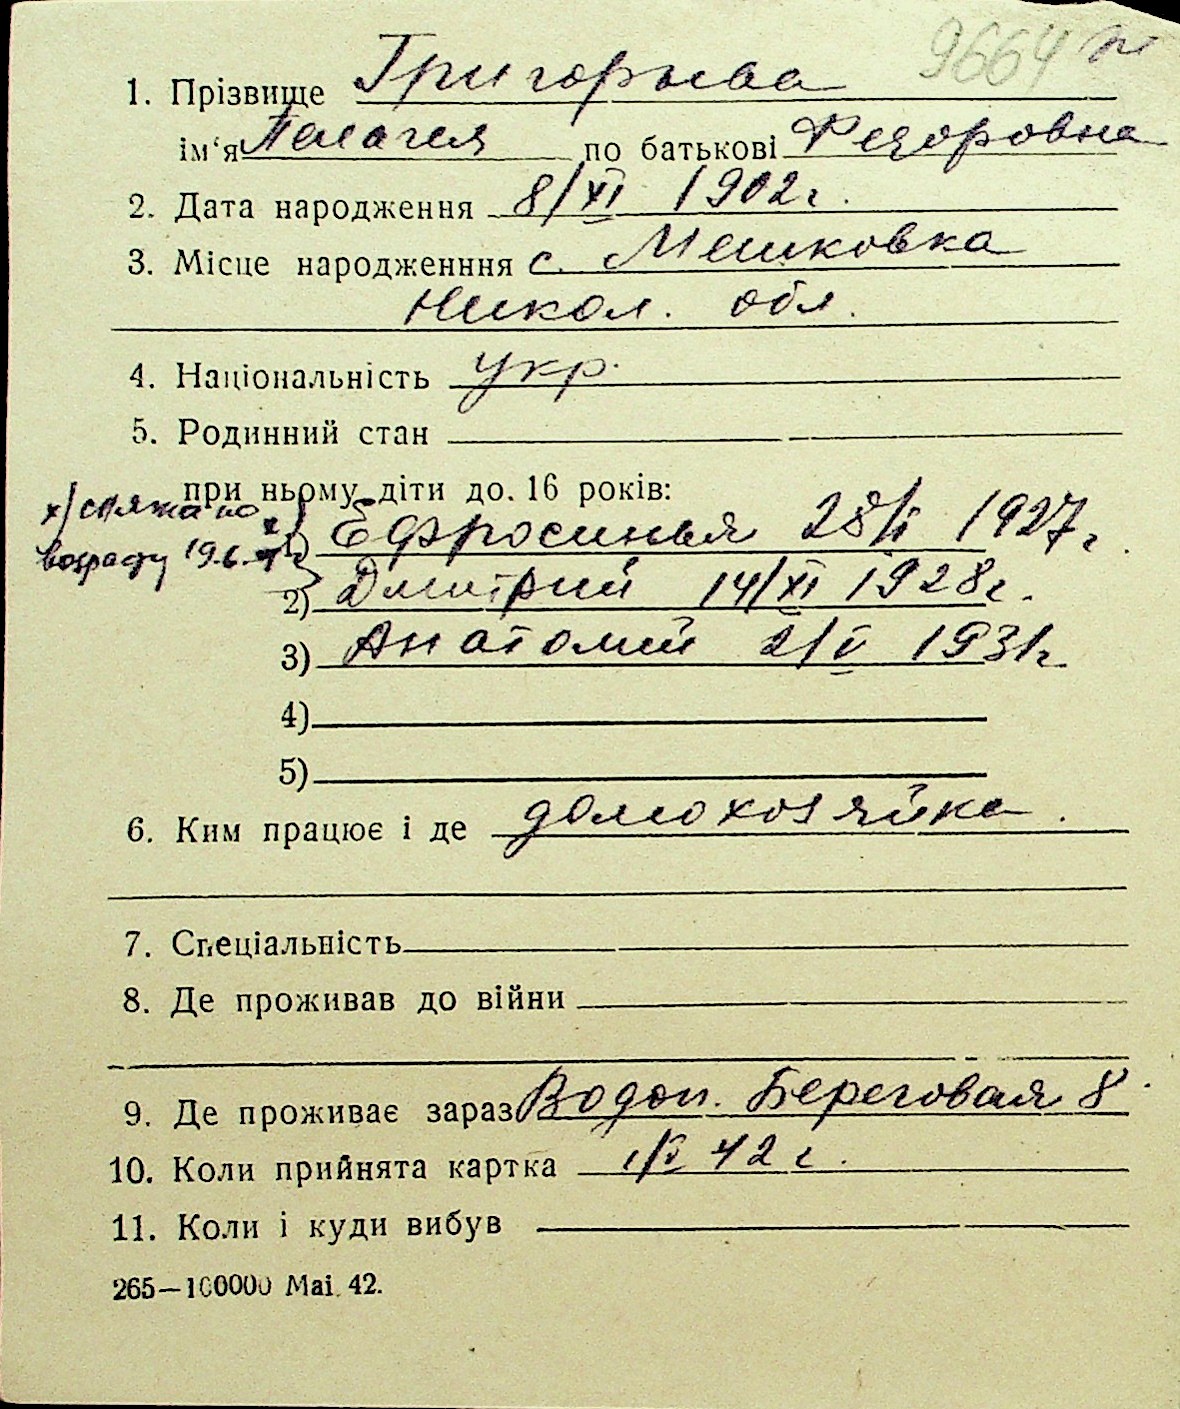 9664
1. Прізвище Григорьева
ім‘я Пелагея по батькові Федоровна
2. Дата народження 8/XI 1902г.
3. Місце народженння с. Мешковка
Никол. обл.
4. Національність укр.
5. Родинний стан
при ньому діти до. 16 років:
х/ снята по
возрасту 19.6.
х 1) Ефросинья 28/ 1927г.
2) Дмитрий 14/XI 1928г.
3) Анатолий 2/V 1931г.
4)
5)
6. Ким працює і де домохозяйка.
7. Спеціальність
8. Де проживав до війни
9. Де проживає зараз Водоп. Береговая 8
10. Коли прийнята картка 42г.
11. Коли і куди вибув
265—100000 Mai. 42.